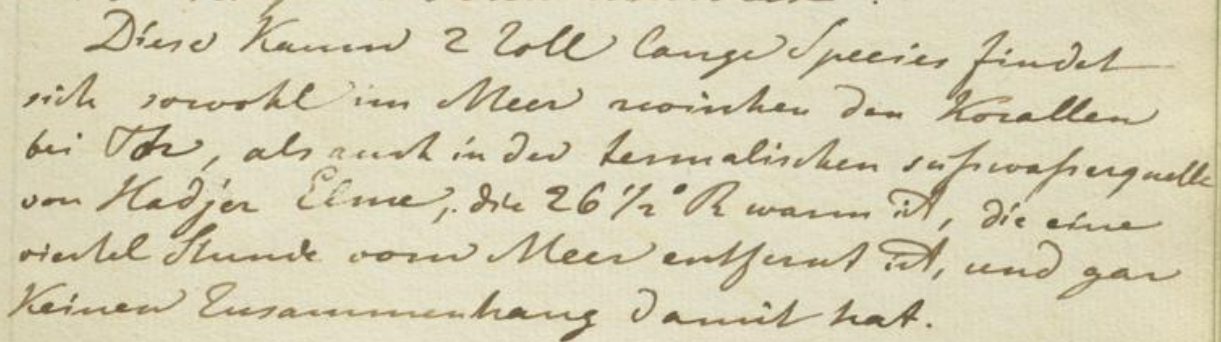 Diese Kaum 2 Zoll lange Species findet
sich sowohl im Meer zwischen den Korallen
bei Tor, als auch in der termalischen süßwaßerquelle
von Hadjer Elme, die 26 1/2° R warm ist, die eine
viertel Stunde vom Meer entfernt ist, und gar
Keinen Zusammenhang damit hat.